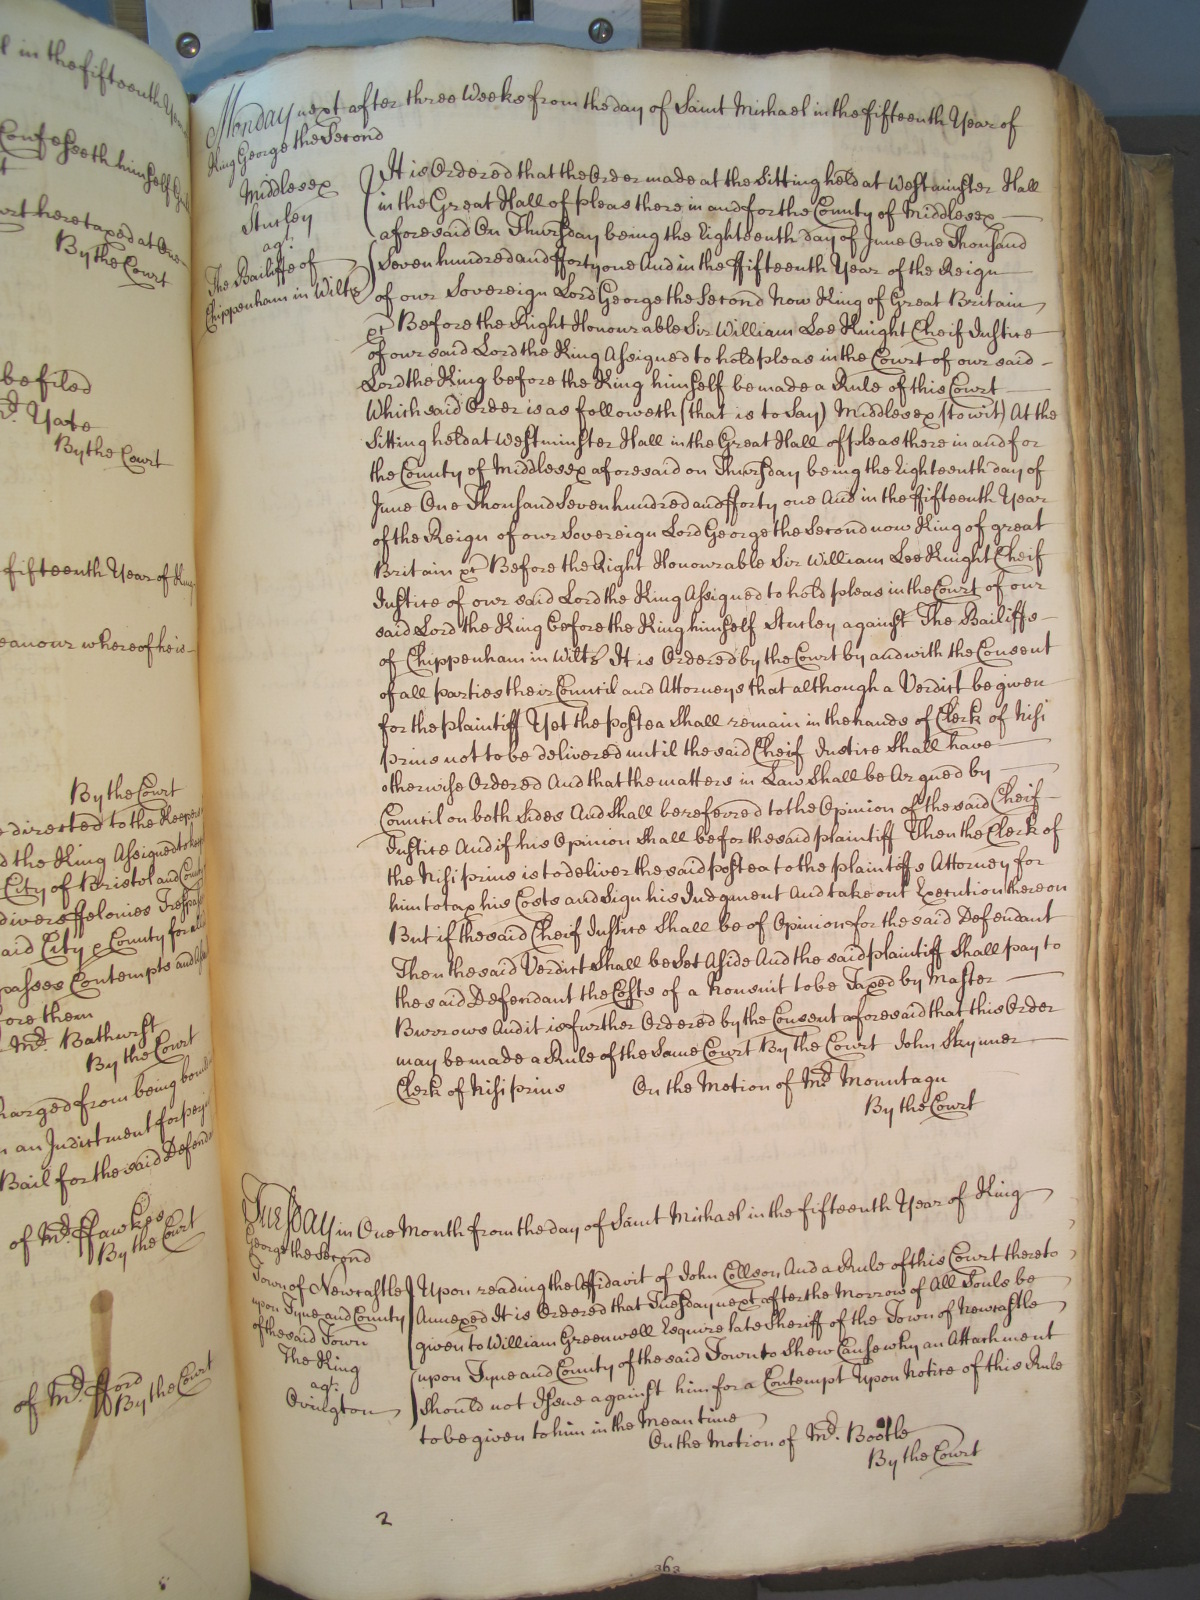 l in the fifteenth Year
Confesseth himself
urt here taxed at One
By the Court
be filed
Mr. Yate
By the Court
fifteenth Year of King
eanour whereof he is
By the Court
e directed to the Keeper
d the King Assigned to keep
City of Bristol and County
divers ffelonies Trespasses
aid City & County for
passes Contempts and
fore them
Mr. Bathurst
By the Court
harged from being bound
n an Indictment for
Bail for the said Defend
of Mr. ffawkes
By the Court
of Mr. fford
By the Court
Monday next after three Weeks from the day of Saint Michael in the fifteenth Year of
King George the Second
Middlesex
Sturley
agt.
The Bailiffs of
Chippenham in Wilts
It is Ordered that the Order made at the Sitting held at Westminster Hall
in the Great Hall of pleas there in and for the County of Middlesex
aforesaid On Thursday being the Eighteenth day of June One Thousand
Seven hundred and fforty one And in the ffifteenth Year of the Reign
of our Sovereign Lord George the Second Now King of Great Britain
&c Before the Right Honourable Sir William Lee Knight Cheif Justice
of our said Lord the King Assigned to hold pleas in the Court of our said
Lord the King before the King himself be made a Rule of this Court
Which said Order is as followeth (that is to Say) Middlesex (to wit) At the
Sitting held at Westminster Hall in the Great Hall of pleas there in and for
the County of Middlesex aforesaid on Thursday being the Eighteenth day of
June One Thousand Seven hundred and fforty one And in the ffifteenth Year
of the Reign of our Sovereign Lord George the Second now King of great
Britain &c Before the Right Honourable Sir William Lee Knight Cheif
Justice of our said Lord the King Assigned to hold pleas in the Court of our
said Lord the King before the King himself Sturley against The Bailiffs
of Chippenham in Wilts It is Ordered by the Court by and with the Consent
of all parties their Council and Attorneys that although a Verdict be given
for the plaintiff Yet the postea Shall remain in the hands of Clerk of Nisi
prius not to be delivered until the said Cheif Justice Shall have
otherwise Ordered And that the matters in Law Shall be Argued by
Council on both Sides And Shall be referred to the Opinion of the said Cheif
Justice And if his Opinion Shall be for the said plaintiff Then the Clerk of
the Nisi prius is to deliver the said postea to the plaintiffs Attorney for
him to tax his Costs and Sign his Judgment And take out Execution thereon
But if the said Cheif Justice Shall be of Opinion for the said Defendant
Then the said Verdict Shall be Set Aside And the said plaintiff Shall pay to
the said Defendant the Costs of a Nonsuit to be Taxed by Master
Burrows And it is further Ordered by the Consent aforesaid that this Order
may be made a Rule of the Same Court By the Court John Skynner
Clerk of Nisi prius On the Motion of Mr. Mountagu
By the Court
Tuesday in One Month from the day of Saint Michael in the fifteenth Year of King
George the Second
Town of Newcastle
upon Tyne and County
of the said Town
The King
agt.
Ovington
Upon reading the Affidavit of John Collson And a Rule of this Court thereto
Annexed It is Ordered that Tuesday next after the Morrow of All Souls be
given to William Greenwell Esquire late Sheriff of the Town of Newcastle
upon Tyne and County of the said Town to Shew Cause why an Attachment
Should not Issue against him for a Contempt Upon Notice of this Rule
to be given to him in the Mean time
On the Motion of Mr. Bootle
By the Court
2
363